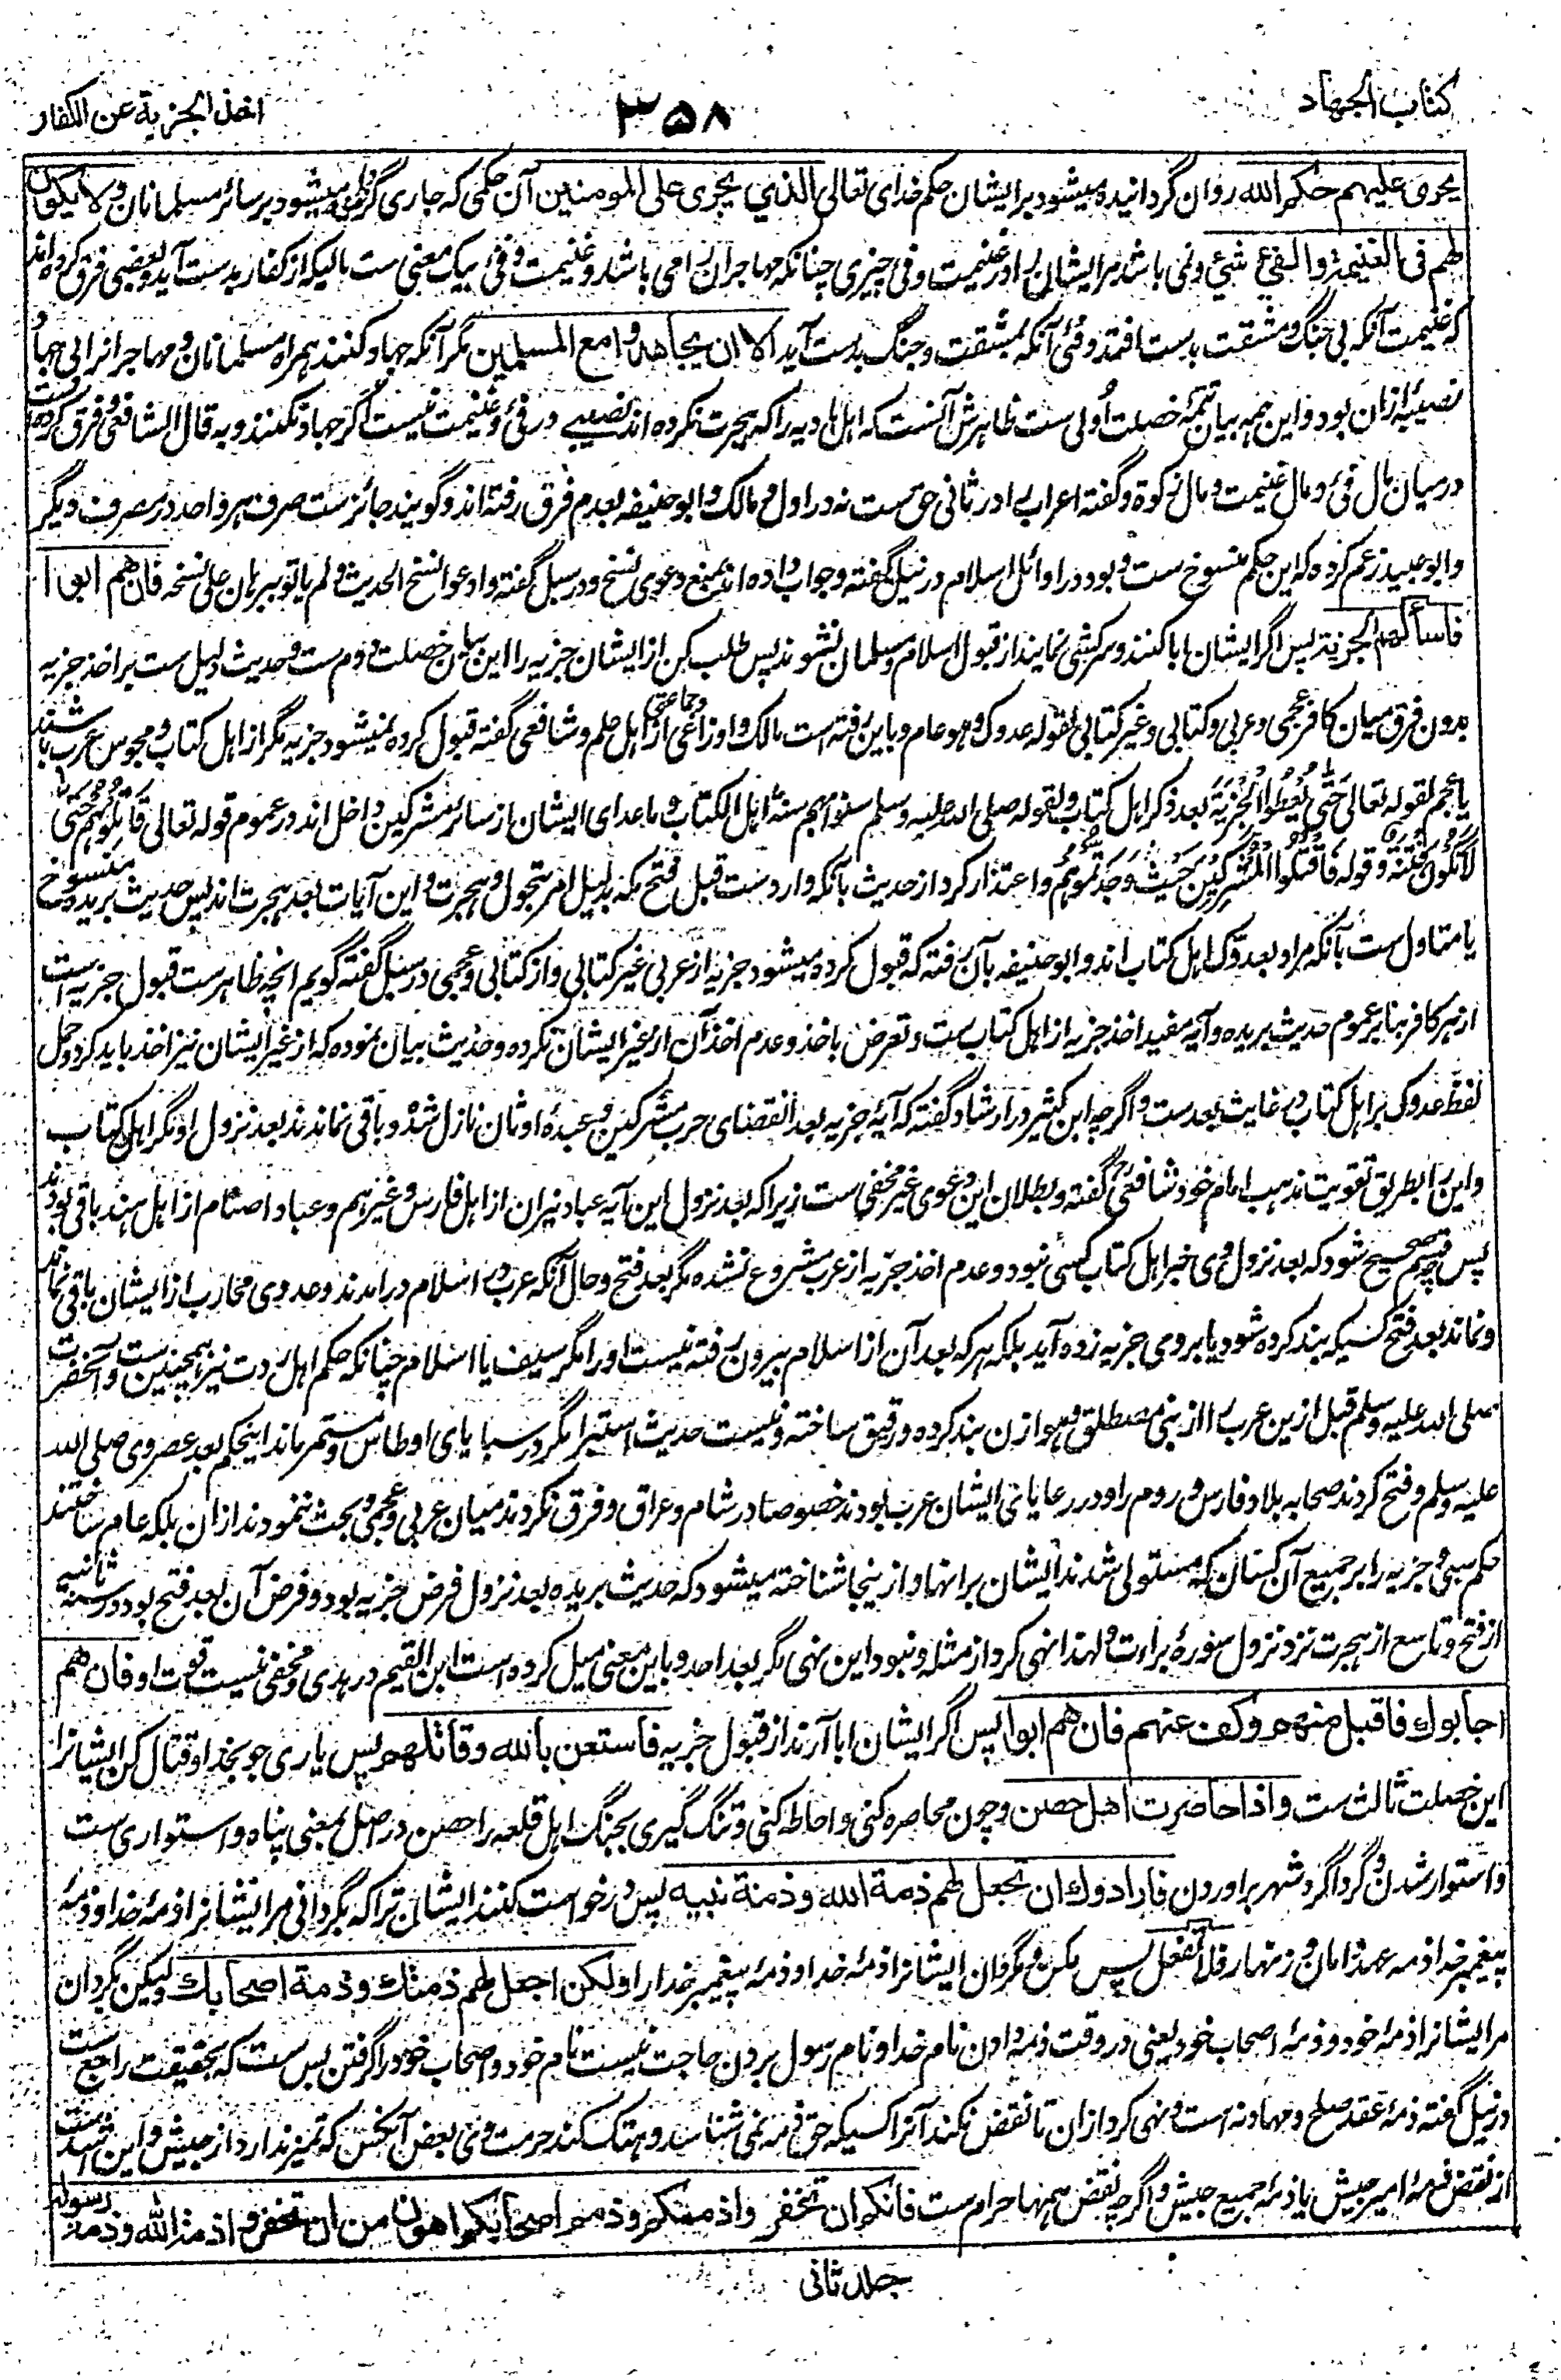 کتاب الجهاد
۳۵۸
اخذ الجزیة عن الکفار
یجری علیهم حکم الله روان گردانیده میشود بر ایشان حکم خدای تعالی الذی یجری علی المومنین آن حکمی که جاری گردانیده میشود بر سائر مسلمانان و لا یکون
لهم فی الغنیمة و الفیء شیء ونمی باشد مر ایشان را در غنیمت و فی چیزی چنانکه مهاجران را می باشد و غنیمت و فئ بیک معنی ست مالیکه از کفار بدست آید و بعضی فرق کرده اند
که غنیمت آنکه بی جنگ و مشقت بدست افتد و فئ آنکه بمشقت و جنگ بدست آید الا ان یجاهدوا مع المسلمین مگر آنکه جهاد کنند همراه مسلمانان و مهاجرانرا بی جهاد
نصیبه ازان بود و این همه بیان تتمهٔ خصلت اُولی ست ظاهرش آنست که اهل بادیه را که هجرت نکرده اند نصیبے در فئ و غنیمت نیست اگر جهاد نکنند و به قال الشافعی و فرق کرده ست
درمیان مال فئ و مال غنیمت و مال زکوة و گفته اعراب را در ثانی حق ست نه در اول و مالک و ابو حنیفه بعدم فرق رفته اند و گویند جائز ست صرف هر واحد در مصرف دیگر
و ابو عبید زعم کرده که این حکم منسوخ ست و بود در اوائل اسلام در نیل گفته و جواب داده اند بمنع دعوی نسخ و در سبل گفته و ادعوا نسخ الحدیث و لم یاتوا ببرهان علی نسخه فان هم ابوا
فاسألهم الجزیة پس اگر ایشان ابا کنند و سرکشی نمایند از قبول اسلام و مسلمان نشوند پس طلب کن از ایشان جزیه را این بیان خصلت دوم ست و حدیث دلیل ست بر اخذ جزیه
بدون فرق میان کافر عجمی و عربی و کتابی و غیر کتابی لقوله عدوک و هو عام و باین رفته است مالک و اوزاعی و جماعتی از اهل علم و شافعی گفته قبول کرده نمیشود جزیه مگر از اهل کتاب و مجوس عرب باشند
یا عجم لقوله تعالی حَتَّی یُعْطُوا الْجِزْیَةَ بعد ذکر اهل کتاب و لقوله صلی الله علیه وسلم سنوا بهم سنة اهل الکتاب و ماعدای ایشان از سائر مشرکین داخل اند در عموم قوله تعالی قَاتِلُوهُمْ حَتَّی
لَا تَکُونَ فِتْنَةٌ و قوله فَاقْتُلُوا الْمُشْرِکِینَ حَیْثُ وَجَدْتُمُوهُمْ و اعتذار کرد از حدیث بآنکه وارد ست قبل فتح مکه بدلیل امر بتحول و هجرت و این آیات بعد هجرت اند پس حدیث بریده منسوخ
یا متاول ست بآنکه مراد بعدوک اهل کتاب اند و ابو حنیفه بآن رفته که قبول کرده میشود جزیه از عربی غیر کتابی و از کتابی و عجمی در سبل گفته گویم انچه ظاهر ست قبول جزیه است
از هر کافر بنا بر عموم حدیث بریده و آیه مفید اخذ جزیه از اهل کتاب ست و تعرض باخذ و عدم اخذ آن از غیر ایشان نکرده و حدیث بیان نموده که از غیر ایشان نیز اخذ باید کرد و حمل
لفظ عدوک بر اهل کتاب در غایت بعد ست و اگرچه ابن کثیر در ارشاد گفته که آیهٔ جزیه بعد انقضای حرب مشرکین و عبدهٔ اوثان نازل شد و باقی نماندند بعد نزول او مگر اهل کتاب
و این را بطریق تقویت مذهب امام خود شافعی گفته و بطلان این دعوی غیر مخفی ست زیرا که بعد نزول این آیه عباد نیران از اهل فارس و غیرهم و عباد اصنام از اهل هند باقی بودند
پس چگونه صحیح شود که بعد نزول وی غیر اهل کتاب کسی نبود و عدم اخذ جزیه از عرب مشروع نشده مگر بعد فتح و حال آنکه عرب در اسلام درآمدند و عدوی محارب از ایشان باقی نماند
و نماند بعد فتح کسیکه بند کرده شود یا بر وی جزیه زده آید بلکه هر که بعد آن از اسلام بیرون رفته نیست او را مگر سیف یا اسلام چنانکه حکم اهل ردت نیز همچنین ست و آنحضرت
صلی الله علیه وسلم قبل ازین عرب را از بنی مصطلق و هوازن بند کرده و رقیق ساخته و نیست حدیث استبرا مگر در سبایای اوطاس و مستمر ماند اینحکم بعد عصر وی صلی الله
علیه وسلم و فتح کردند صحابه بلاد فارس و روم را و در رعایای ایشان عرب بودند خصوصا در شام و عراق و فرق نکردند میان عربی و عجمی و بحث ننمودند ازان بلکه عام ساختند
حکم سبی و جزیه را بر جمیع آن کسان که مستولی شدند ایشان بر انها و ازینجا شناخته میشود که حدیث بریده بعد نزول فرض جزیه بود و فرض آن بعد فتح بود در سنهٔ ثانیه
از فتح و تاسع از هجرت نزد نزول سورهٔ براءت و لهذا نهی کرد از مثله و نبود این نهی مگر بعد احد و باین معنی میل کرده است ابن القیم در هدی و مخفی نیست قوت او فان هم
اجابوك فاقبل منهم وکف عنهم فان هم ابوا پس اگر ایشان ابا آرند از قبول جزیه فاستعن بالله وقاتلهم پس یاری جو بخدا و قتال کن ایشانرا
این خصلت ثالث ست واذا حاصرت اهل حصن و چون محاصره کنی و احاطه کنی و تنگ گیری بجنگ اهل قلعه را حصن در اصل بمعنی پناه و استواری ست
و استوار شدن و گرداگرد شهر براوردن فارادوك ان تجعل لهم ذمة الله وذمة نبیه پس درخواست کنند ایشان ترا که بگردانی مر ایشانرا ذمهٔ خدا و ذمهٔ
پیغمبر خدا ذمه عهد و امان و زنهار فلا تفعل پس مکن و مگردان ایشانرا ذمهٔ خدا و ذمهٔ پیغمبر خدا را ولکن اجعل لهم ذمتك وذمة اصحابك ولیکن بگردان
مر ایشانرا ذمهٔ خود و ذمهٔ اصحاب خود یعنی در وقت ذمه دادن نام خدا و نام رسول بردن حاجت نیست نام خود و اصحاب خود را گرفتن بس ست که بحقیقت راجع ست
در نیل گفته ذمهٔ عقد صلح و مهادنه است و نهی کرد ازان تا نقض نکند آنرا کسیکه حق ذمه نمی شناسد و هتک کند حرمت وی بعض آنکس که تمیز ندارد از جیش و این اشد ست
از نقض ذمهٔ امیر جیش یا ذمهٔ جمیع جیش و اگرچه نقض همها حرام ست فانکم ان تخفروا ذمتکم وذمم اصحابکم اهون من ان تخفروا ذمة الله وذمة رسوله
جلد ثانی